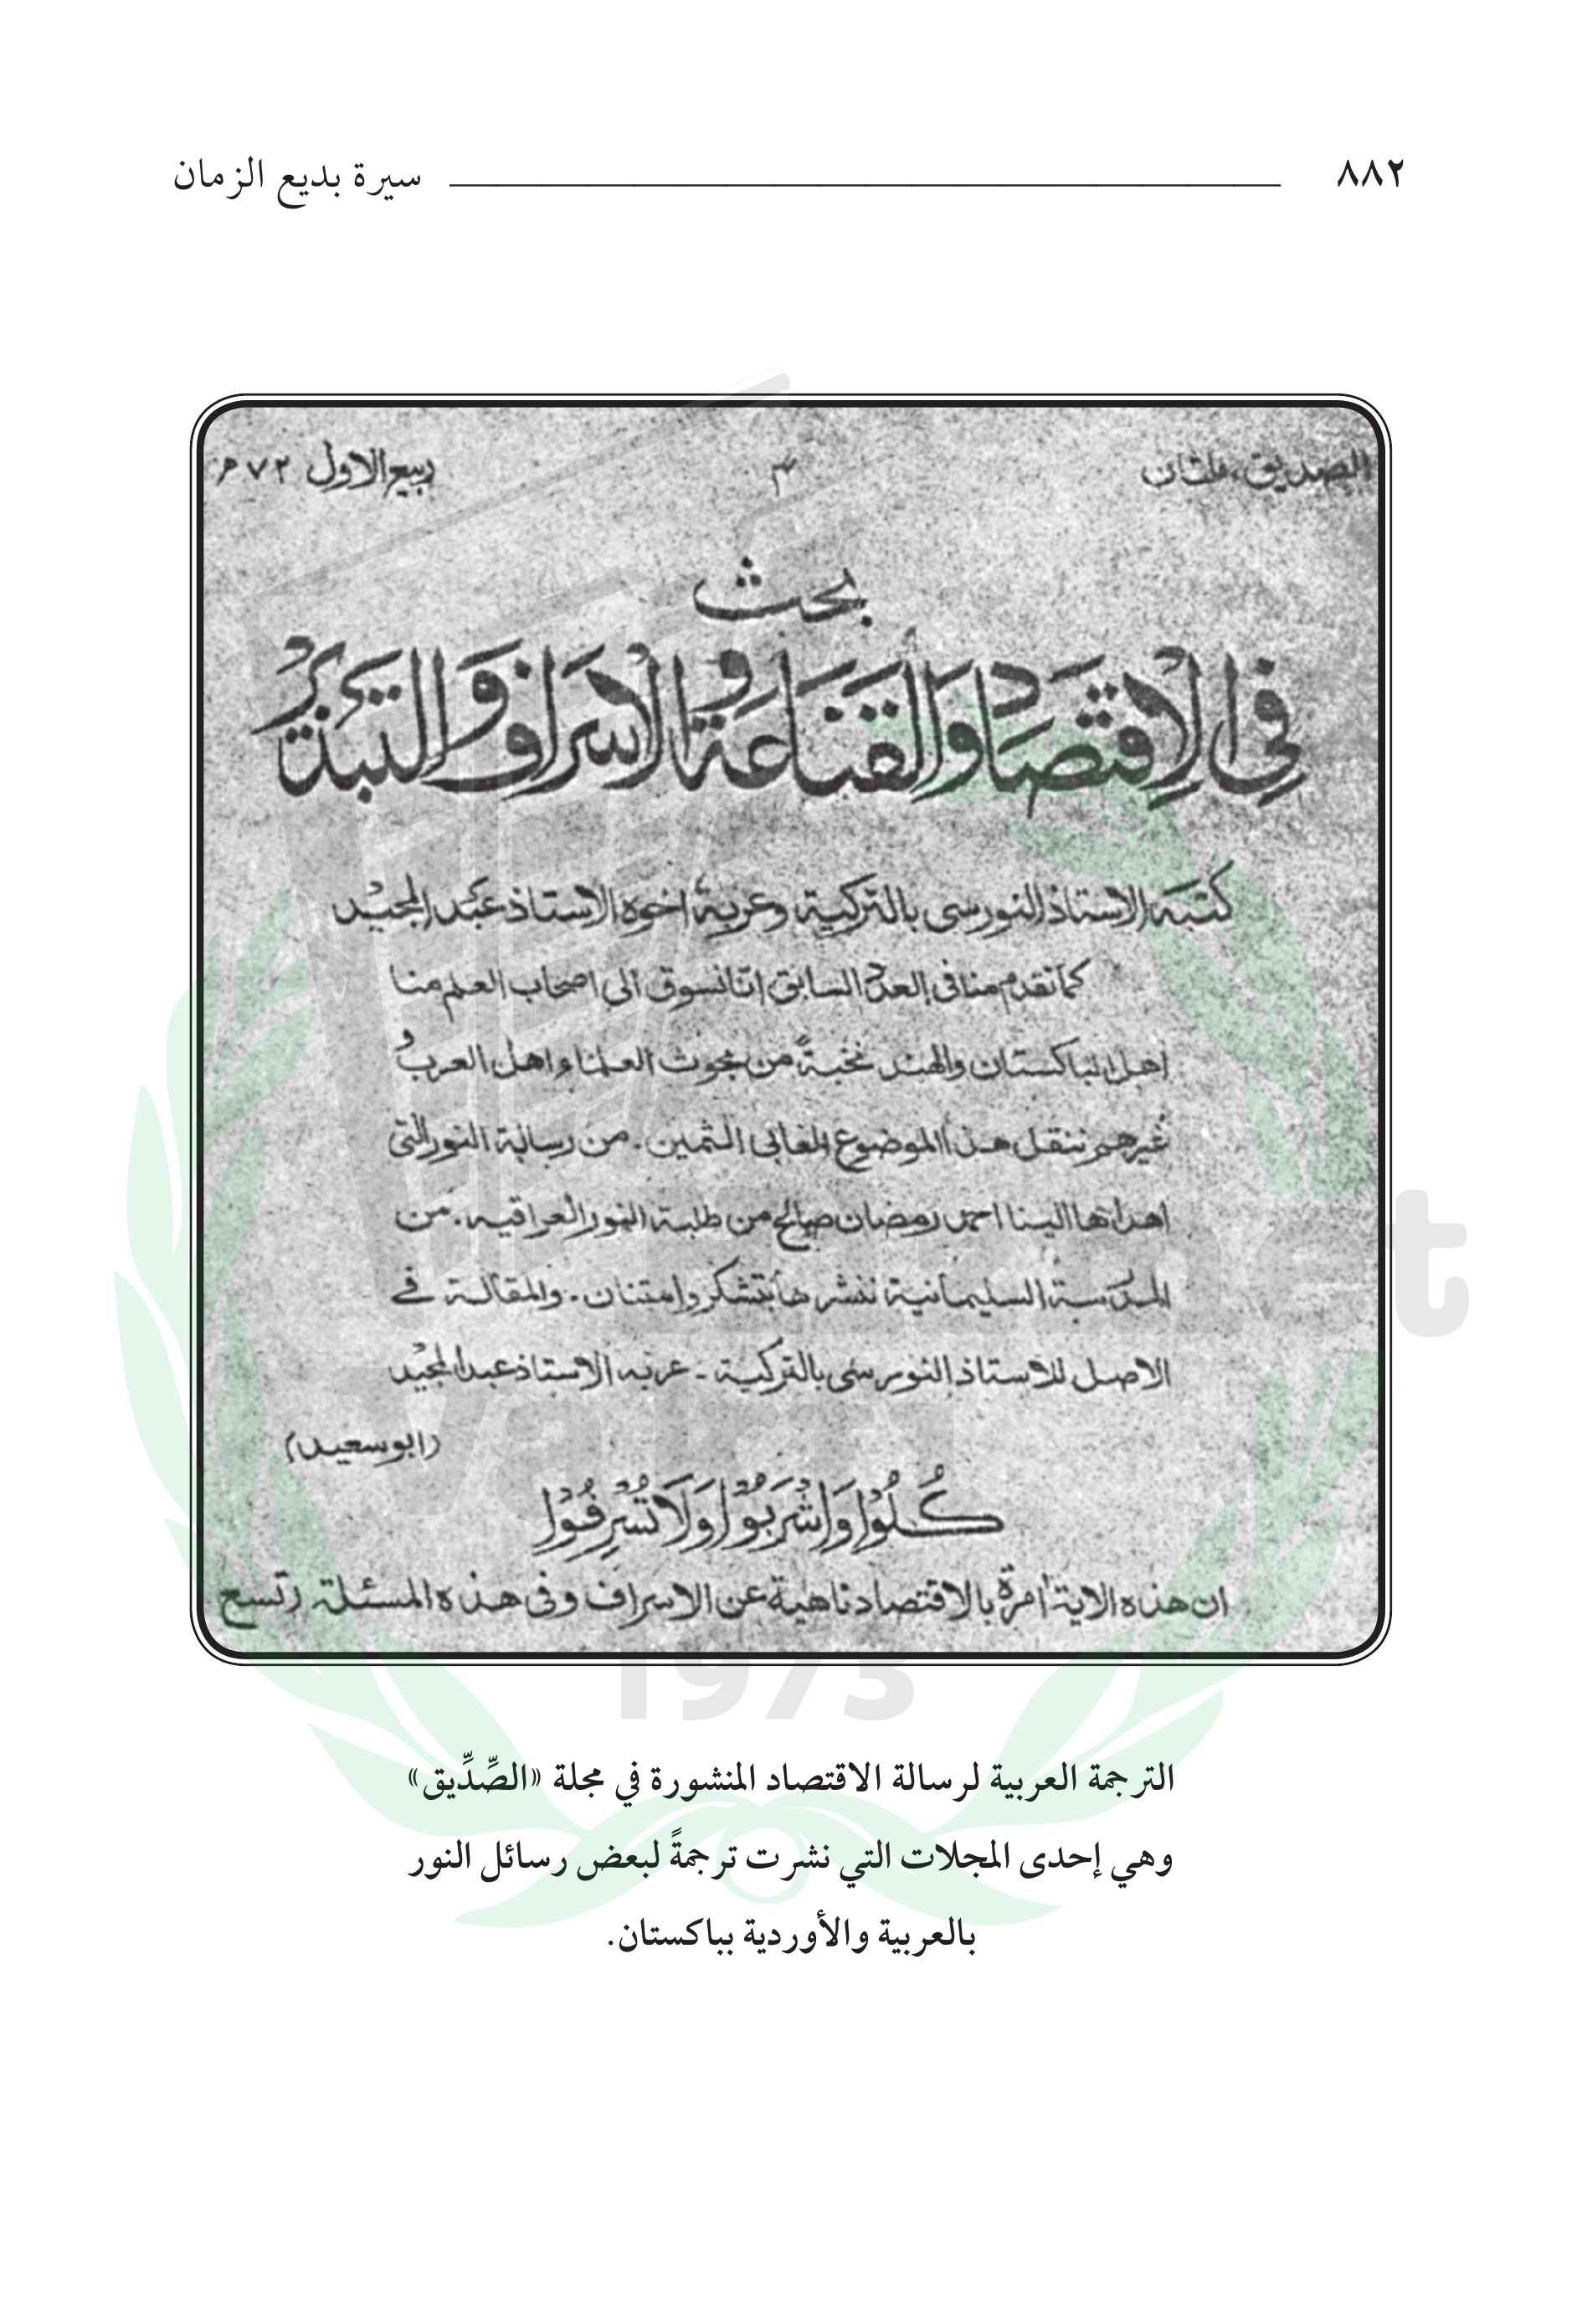 ٨٨٢ سيرة بديع الزمان
الصديق، ملتان ٣ ربيع الاول ٧٢ هـ
بحث
فِي الاِقتصَاد وَالقَنَاعَة وَالاسرَاف وَالتبذير
كتبه الاستاذ النورسى بالتركية وعربه اخوه الاستاذ عبد المجيد
كما تقدم منا فى العدد السابق اننا نسوق الى اصحاب العلم منا
اهل الباكستان والهند نخبةً من بحوث العلماء اهل العرب و
غيرهم ننقل هذا الموضوع الثمين. من رسالة النور التى
اهداها الينا احمد رمضان صالح من طلبة النور العراقيه. من
المدرسة السليمانية ننشرها بتشكر وامتنان. والمقالة فى
الاصل للاستاذ النورسى بالتركية - عربه الاستاذ عبد المجيد
(ابو سعيد)
كُلُوْا وَاشْرَبُوْا وَلَا تُسْرِفُوْا
ان هذه الاية امرة بالاقتصاد ناهية عن الاسراف وفى هذه المسئلة
الترجمة العربية لرسالة الاقتصاد المنشورة في مجلة «الصِّدِّيق»
وهي إحدى المجلات التي نشرت ترجمةً لبعض رسائل النور
بالعربية والأوردية بباكستان.
net
Vakfı
1973